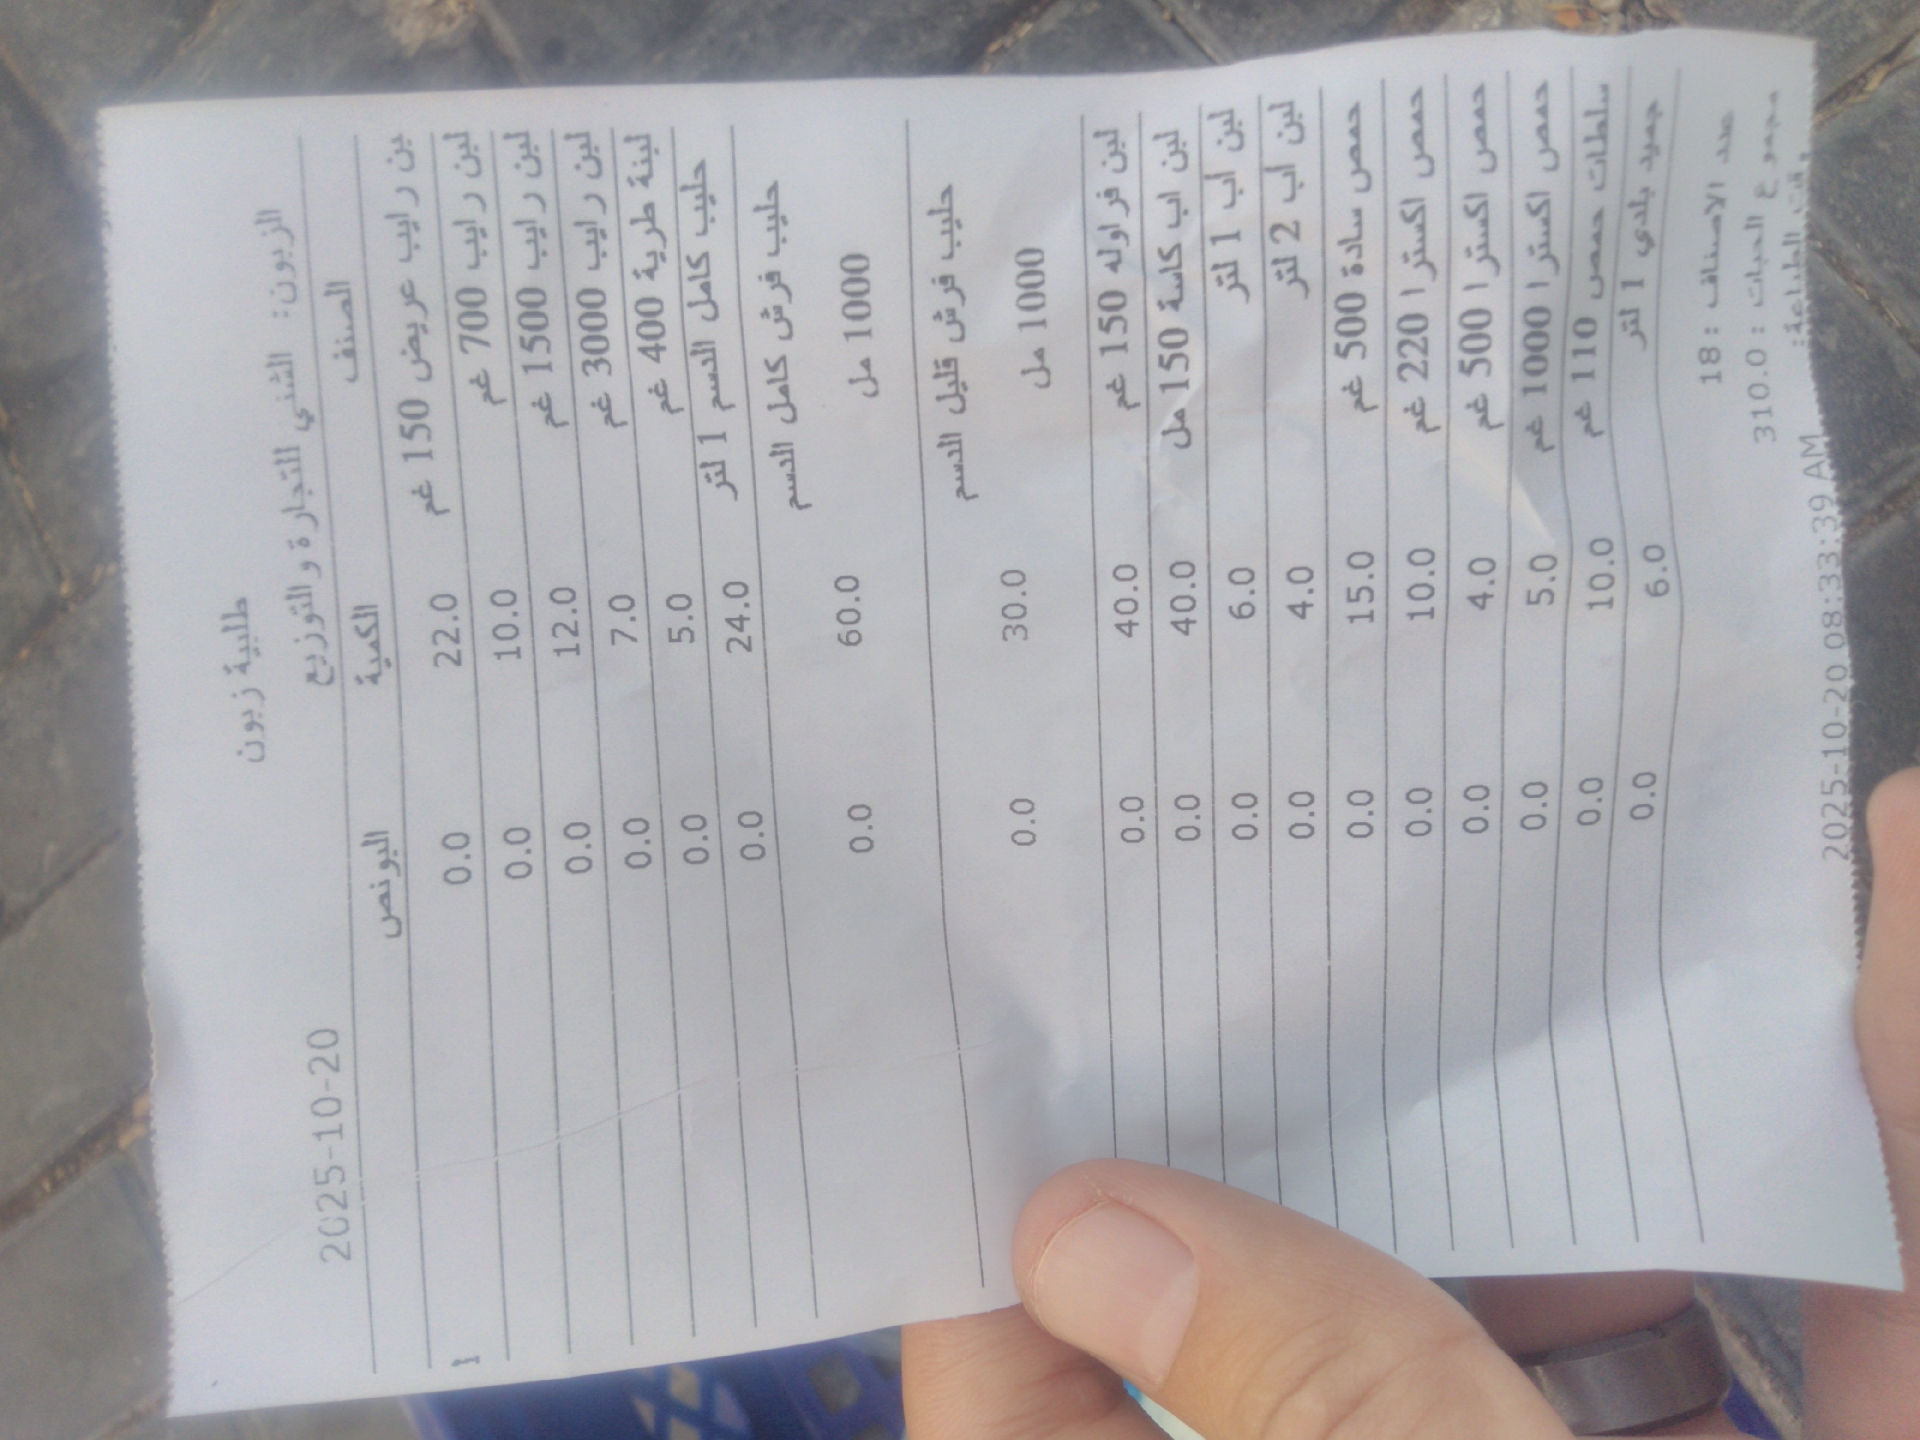 طلبية زبون
الزبون: الشني للتجارة والتوزيع 2025-10-20
الصنف الكمية البونص
بن رايب عريض 150 غم 22.0 0.0
لبن رايب 700 غم 10.0 0.0
لبن رايب 1500 غم 12.0 0.0
لبن رايب 3000 غم 7.0 0.0
لبنة طرية 400 غم 5.0 0.0
حليب كامل الدسم 1 لتر 24.0 0.0
حليب فرش كامل الدسم
1000 مل 60.0 0.0
حليب فرش قليل الدسم
1000 مل 30.0 0.0
لبن فراوله 150 غم 40.0 0.0
لبن اب كاسة 150 مل 40.0 0.0
لبن اب 1 لتر 6.0 0.0
لبن اب 2 لتر 4.0 0.0
حمص سادة 500 غم 15.0 0.0
حمص اكسترا 220 غم 10.0 0.0
حمص اكسترا 500 غم 4.0 0.0
حمص اكسترا 1000 غم 5.0 0.0
سلطات حمص 110 غم 10.0 0.0
جميد بلدي 1 لتر 6.0 0.0
عدد الاصناف : 18
مجموع الحبات : 310.0
وقت الطباعة:
2025-10-20 08:33:39 AM